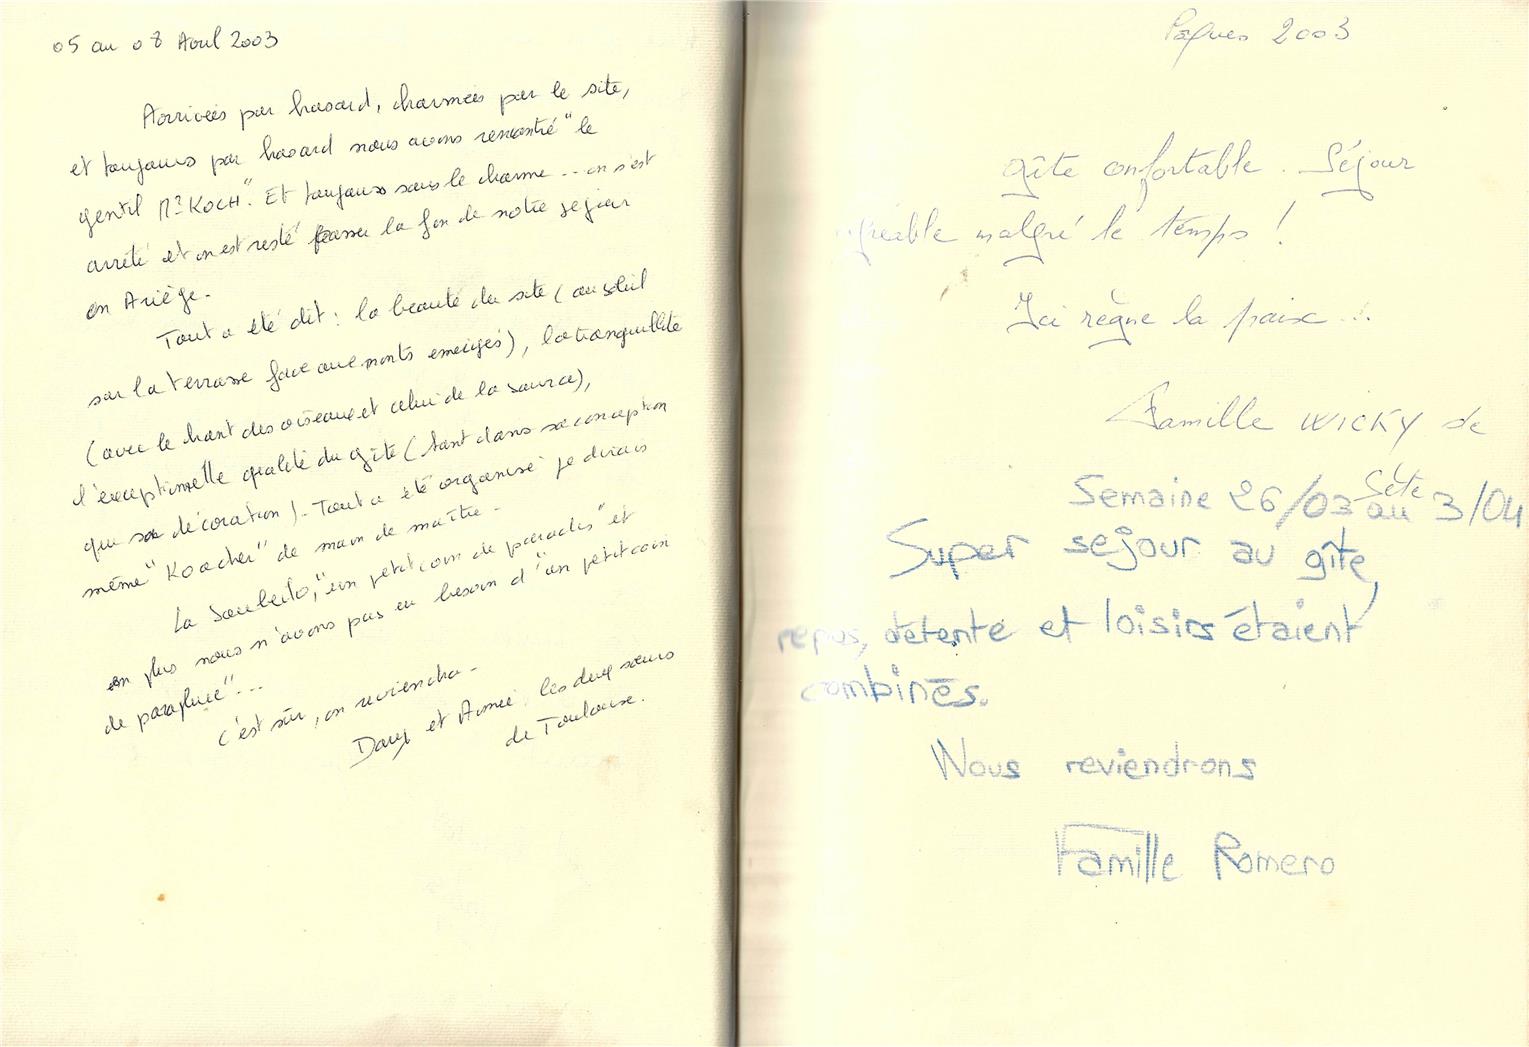 05 au 08 Avril 2003
Arrivées par hasard, charmées par le site,
et toujours par hasard nous avons rencontré "le
gentil Mr KOCH". Et toujours sous le charme... on s'est
arrêté et on est resté passer la fin de notre séjour
en Ariège.
Tout a été dit : la beauté du site (au soleil
sur la terrasse face aux monts enneigés), la tranquillité
(avec le chant des oiseaux et celui de la source),
l'exceptionnelle qualité du gîte (tant dans sa conception
que sa décoration). Tout a été organisé je dirais
même "Koacher" de main de maître.
La "un petit coin de paradis" et
en plus nous n'avons pas eu besoin d'"un petit coin
de parapluie"...
c'est sûr, on reviendra.
Dany et Aimée, les deux soeurs
de Toulouse.
Pâques 2003
Gîte confortable. Séjour
agréable malgré le temps !
Ici règne la paix...
Famille WICKY de
Sète
Semaine 26/03 au 3/04
Super sejour au gîte,
repos, détente et loisirs étaient
combinés.
Nous reviendrons
Famille Romero